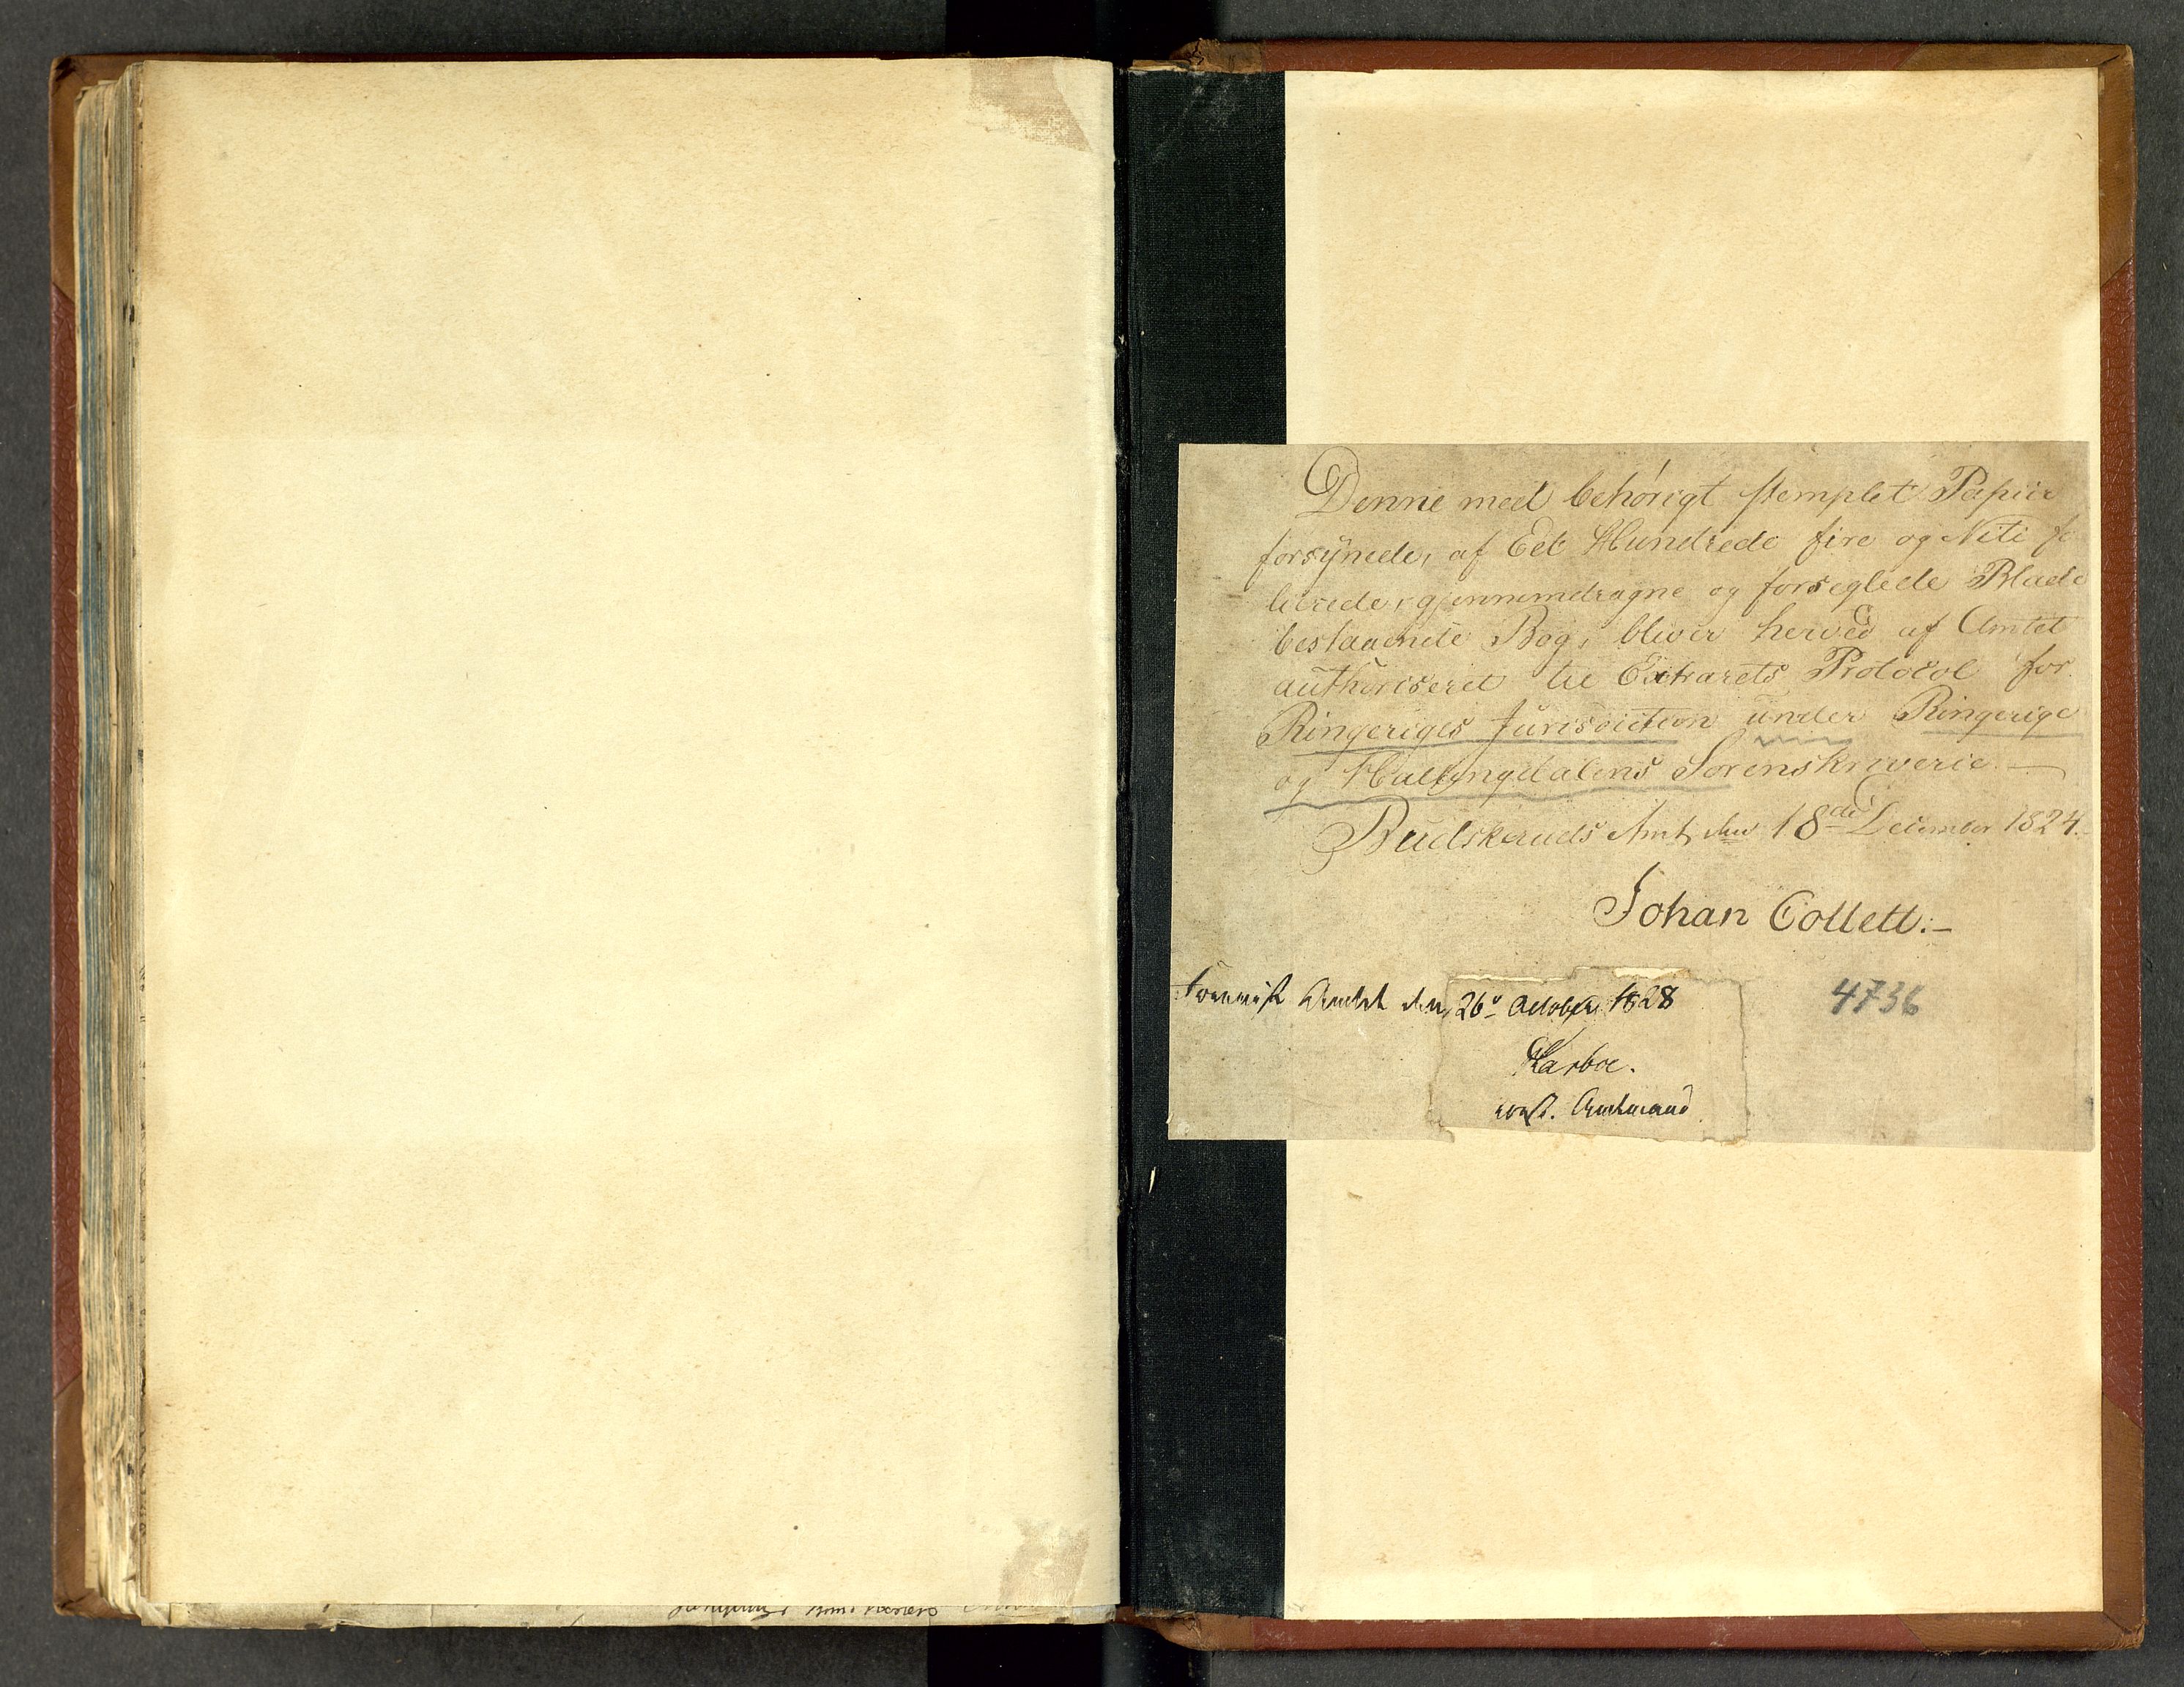 Denne med behørigt stemplet Papiir
forsÿnede, af Eet Hundrede fire og Niti fo
lierede, gjennemdragne og forseglede Blade
bestaaende Bog, bliver herved af Amtet
authoriseret til Extrarets Protocol for
Ringeriges Jurisdiction under Ringerige
og Hallingdalens Sorenskriverie.—
Budskeruds Amt den 18de December 1824.
Johan Collett.—
den 26de October 1828
4736
Harboe.
const. Amtmand